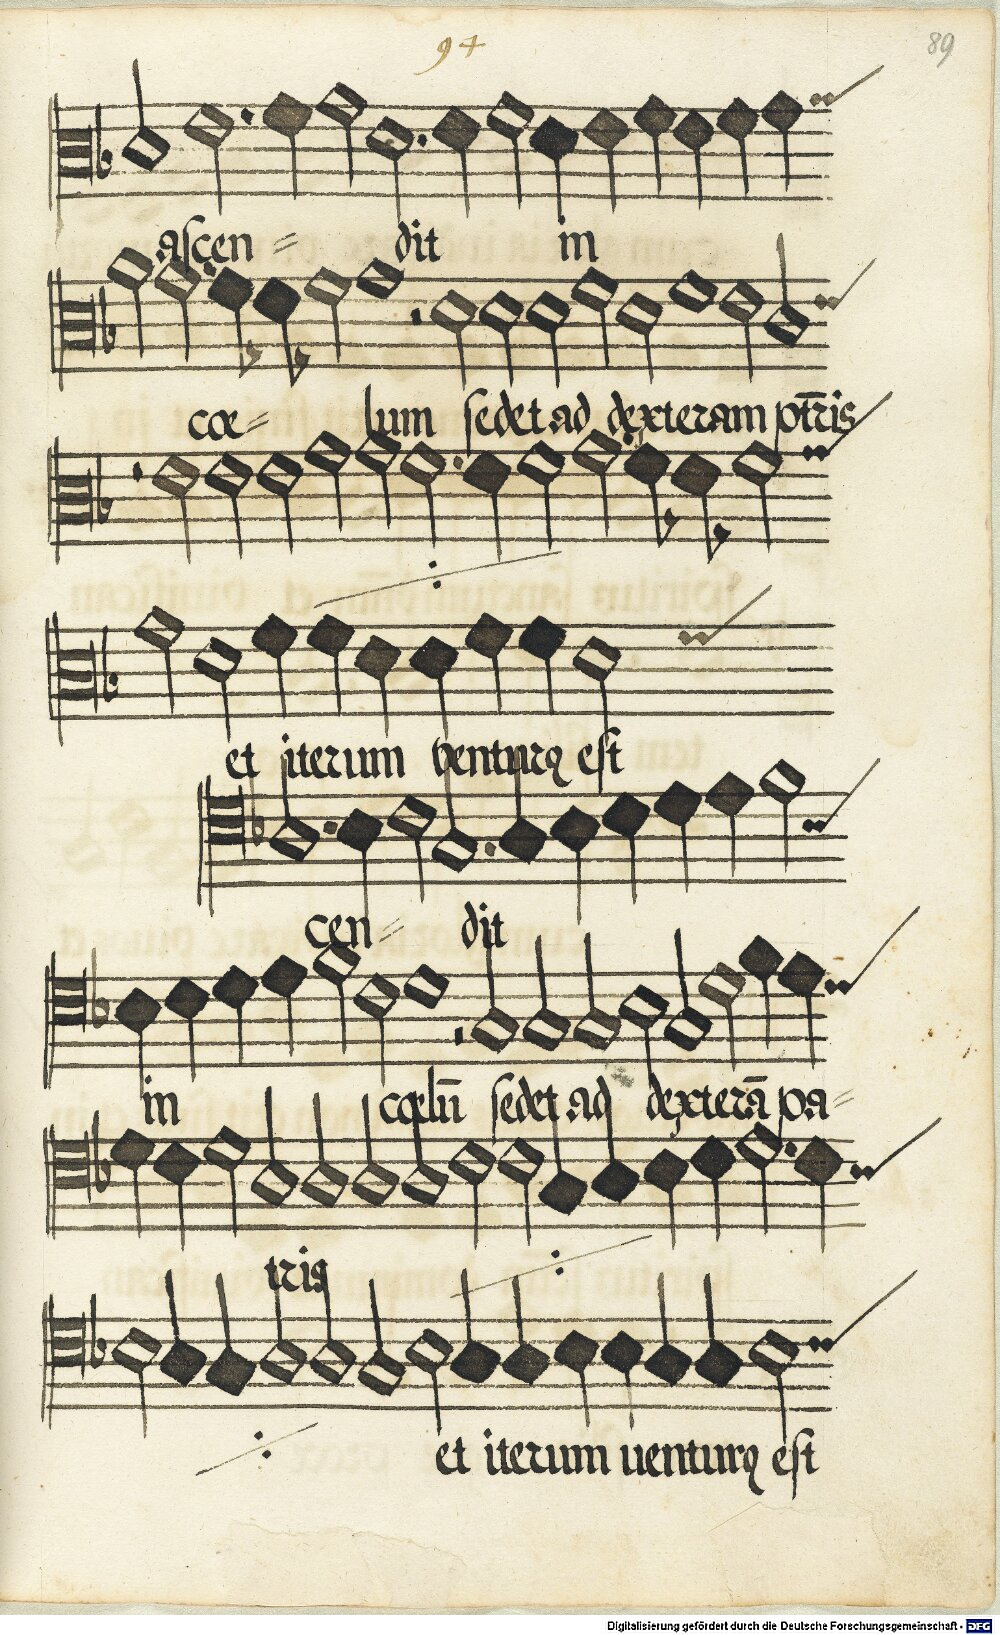 94
89
ascen = dit in
cœ= lum sedet ad dexteram pt̄ris
et iterum venturꝯ est
cen = dit
in cœlū sedet ad dexterā pa=
tris
et iterum uenturꝯ est
Digitalisierung gefördert durch die Deutsche Forschungsgemeinschaft - DFG